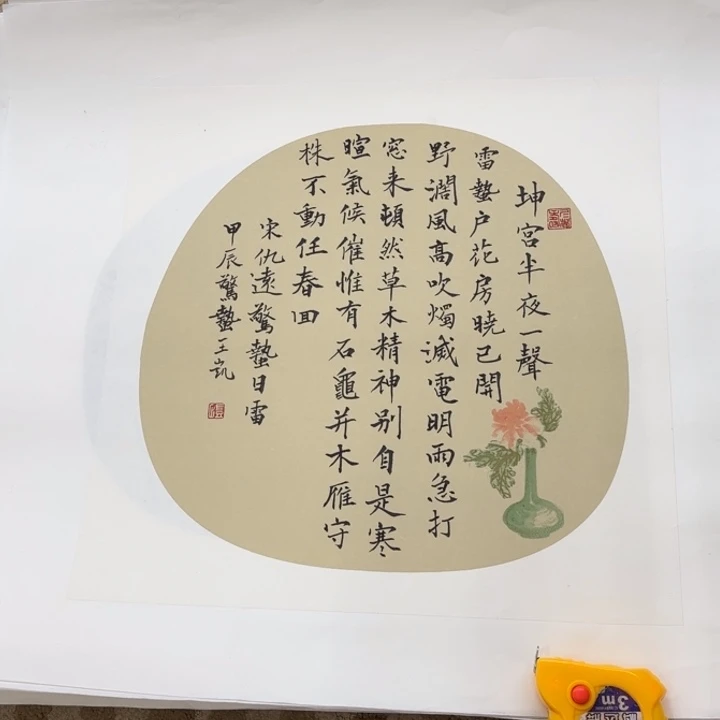 坤宮半夜一聲
雷蟄户花房曉已開
野濶風高吹燭滅電明雨急打
窓来頓然草木精神别自是寒
暄氣候催惟有石龜并木雁守
株不動任春回
宋仇遠驚蟄日雷
甲辰驚蟄王凱
3m